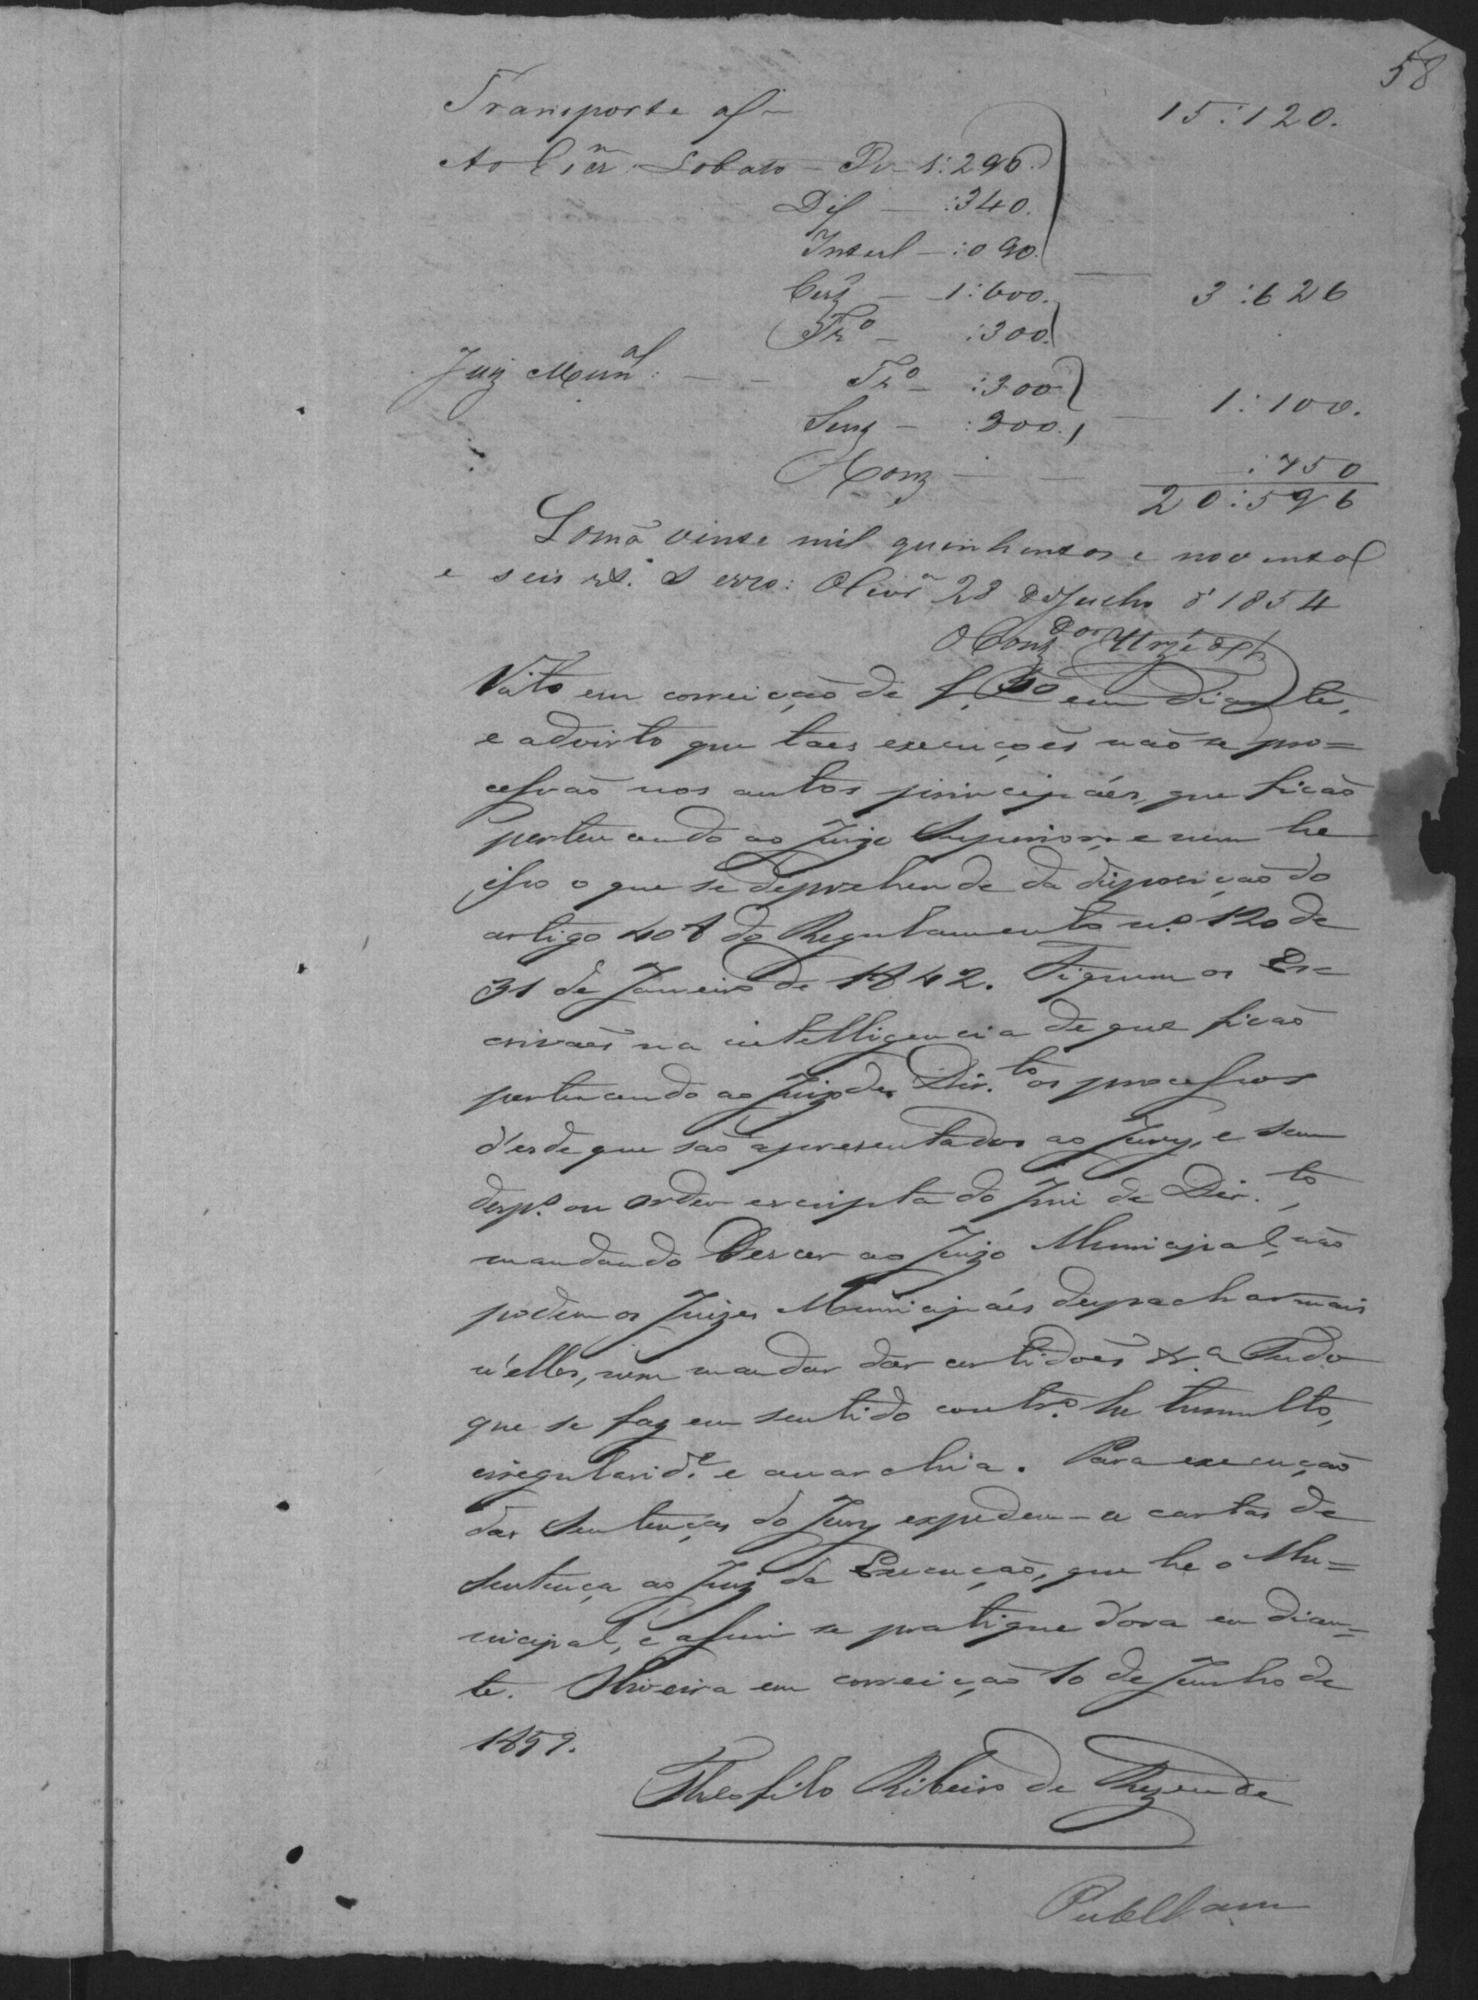 58
Transporte 15:120.
Ao Escrm Lobato - 1:296.
Dif — :340.
Interl — :090.
Certz — 1:600. — 3:626
Tro — :300.
Juiz Munal: — — Tro — :300
Senz — :200. — 1:100.
Conz — — :750
20:596
Somã vinte mil quinhentos e noventa
e seis rs. S erro: Olivra 28 de Julho d' 1854
O Conzdor
Visto em correição de f. 50 em diante,
e advirto que taes execuções não se pro=
cessão nos autos principáes, que ficão
pertencendo ao Juizo Superior, e nem he
isso o que se deprehende da disposição do
artigo 408 do Regulamento n.o 120 de
31 de Janeiro de 1842. Fiquem os Es=
crivães na intelligencia de que ficão
pertencendo ao Juiz de Dir.to os processos
d'esde que são apresentados ao Jury, e sem
desp.o ou ordem escripta do Jui de Dir.to,
mandando descer ao Juizo Municipal, não
podem os Juizes Municipáes despachar mais
n'elles, nem mandar dar certidoẽs &.a Tudo
que se faz em sentido contr.o he tumulto,
irregularid.e e anarchia. Para execução
das Sentenças do Jury expedem-se cartas de
Sentença ao Juiz da Execução, que he o Mu=
nicipal, e assim se pratique d'ora em dian=
te. Oliveira em correição 10 de Junho de
1859.
Theofilo Ribeiro de Rezende
Publcam